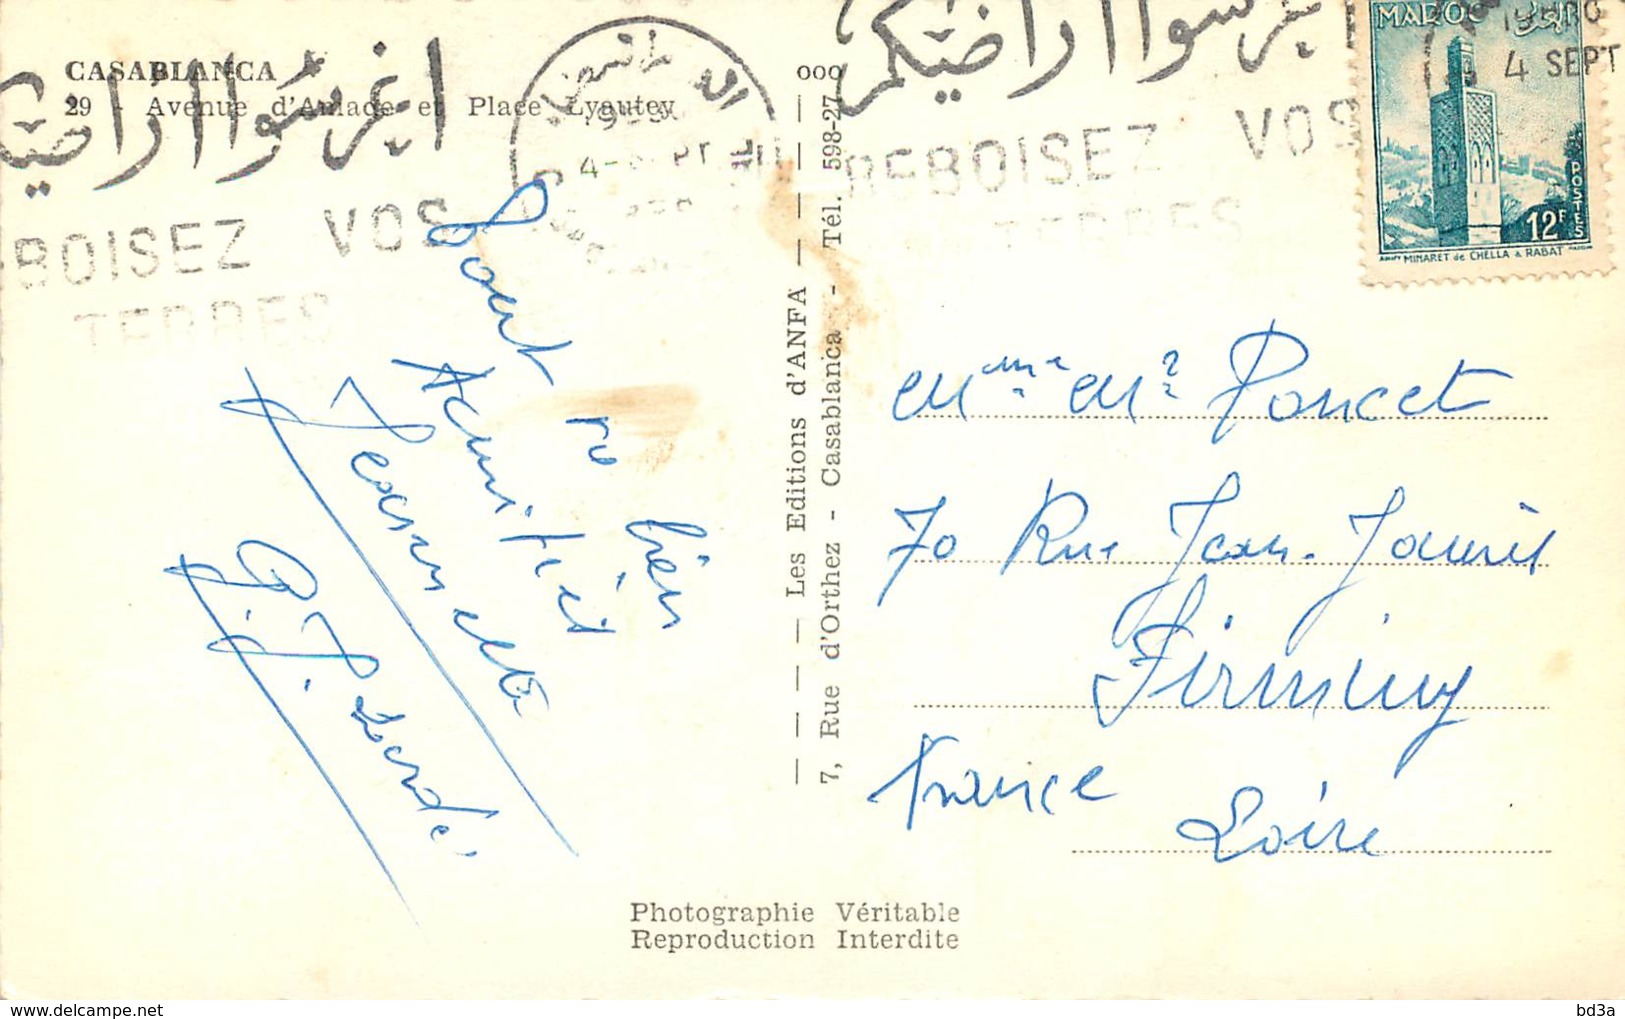 CASABLANCA
29 - Avenue d'Amade et Place Lyautey
اغرسوا اراضيكم
REBOISEZ VOS
TERRES
4-SEPT
اغرسوا اراضيكم
REBOISEZ VOS
TERRES
4 SEPT
MAROC
POSTES
12F
MINARET de CHELLA à RABAT
bien
Amitiés
Jeannette
— — — — Les Editions d'ANFA — — — — ooo
7, Rue d'Orthez - Casablanca - Tél. 598-27
Mme Mr Poncet
70 Rue Jean-Jaurès
Firminy
France
Loire
Photographie Véritable
Reproduction Interdite
delcampe.net
bd3a